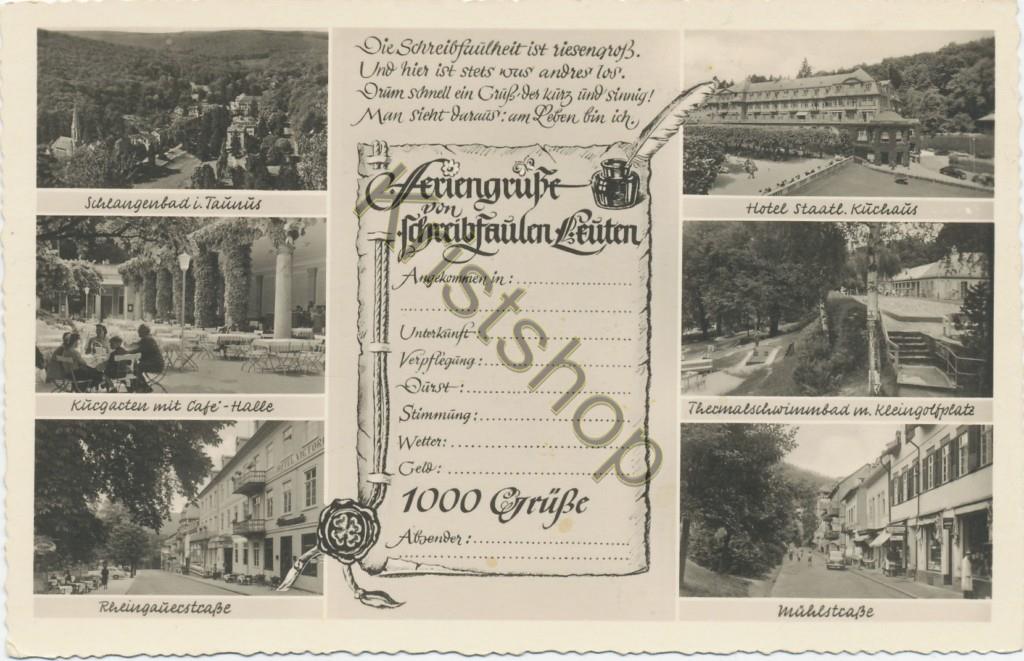 Die Schreibfaulheit ist riesengroß.
Und hier ist stets was andres los.
Drum schnell ein Gruß, der kurz und sinnig!
Man sieht daraus: am Leben bin ich.
Feriengrüße
von
schreibfaulen Leuten
Angekommen in:
Unterkunft:
Verpflegung:
Durst:
Stimmung:
Wetter:
Geld:
1000 Grüße
Absender:
Schlangenbad i. Taunus
Kurgarten mit Café-Halle
HOTEL VICTORIA
Rheingauerstraße
Hotel Staatl. Kurhaus
Thermalschwimmbad m. Kleingolfplatz
Mühlstraße